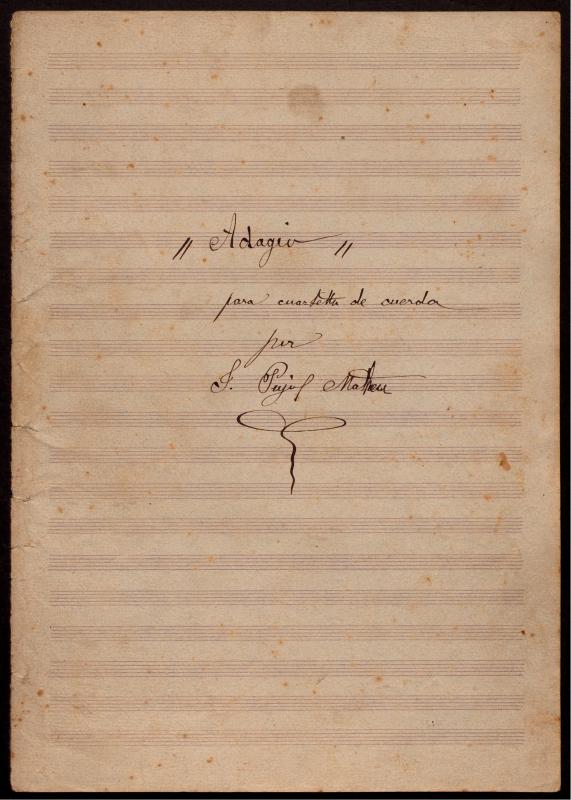 „ Adagio „
para cuartetto de cuerda
por
J. Pujol Matheu